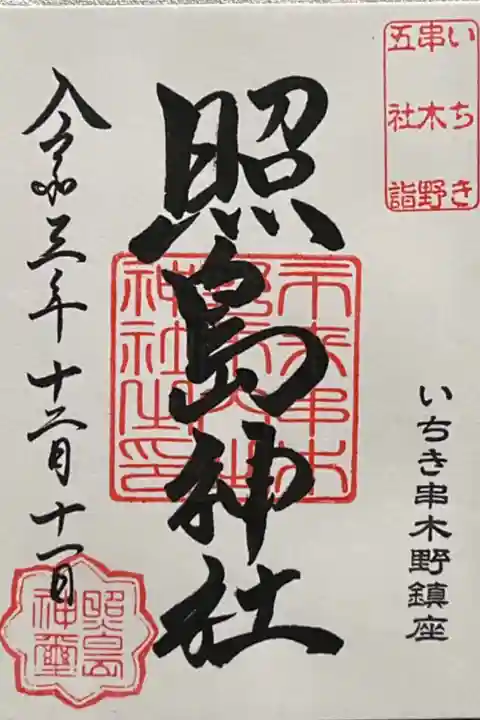 いちき
串木野
五社詣
いちき串木野鎮座
照島神社
令和三年十二月十一日
照島
神璽